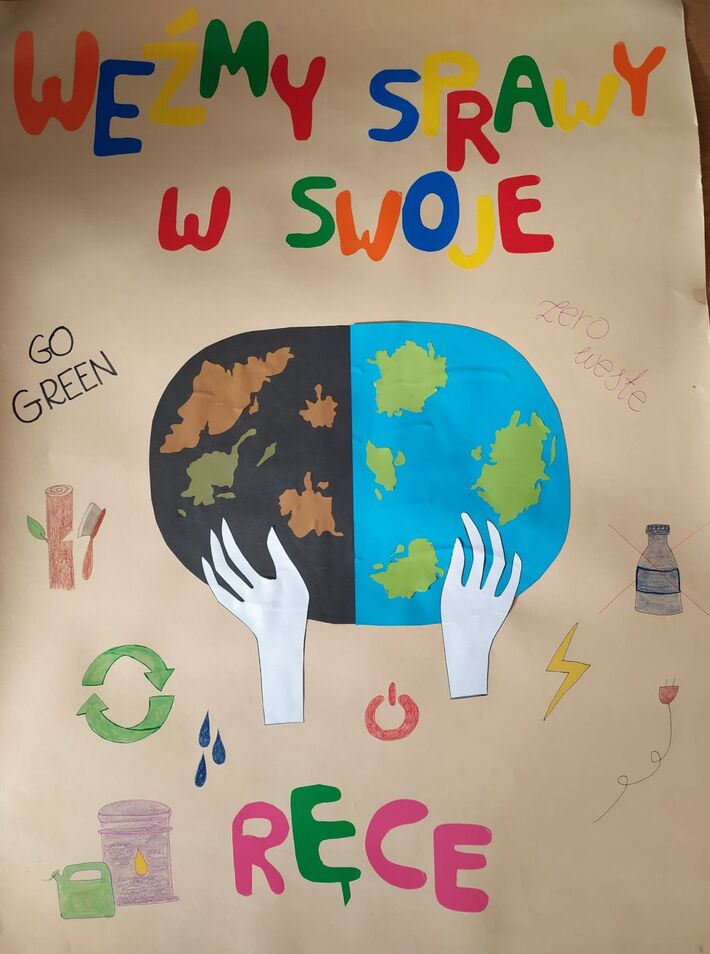 WEŹMY SPRAWY
W SWOJE
GO
GREEN
zero
weste
RĘCE